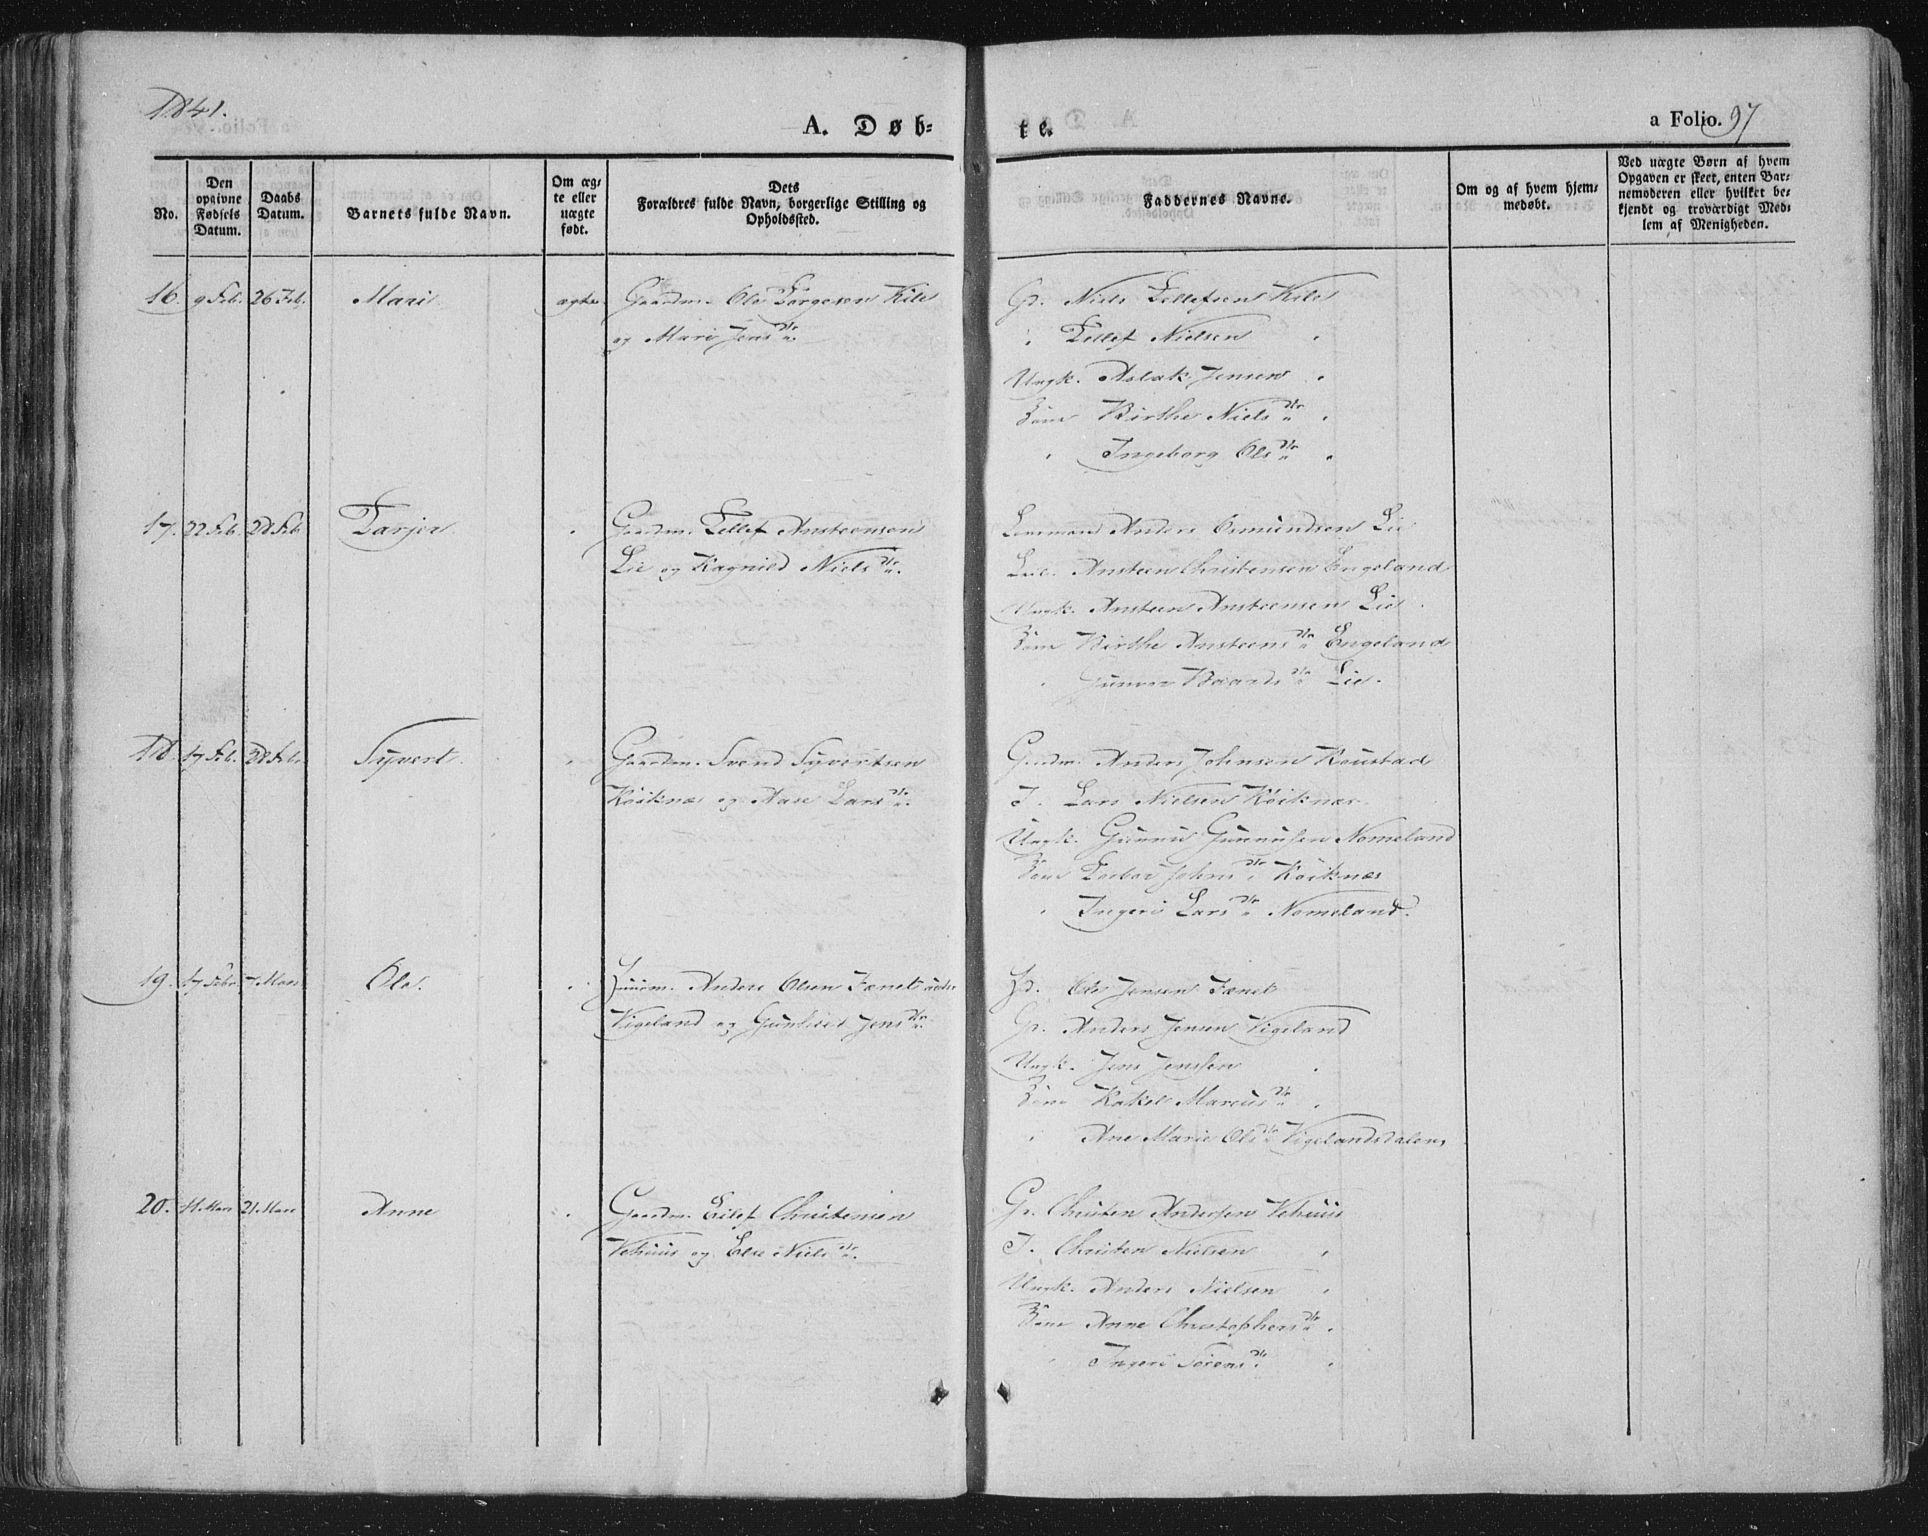 1841.
A. Døb-
te.
a Folio. 97
No.
Den
opgivne
Fødsels
Datum.
Daabs
Datum.
Barnets fulde Navn.
Om æg-
te eller
uægte
født.
Dets
Forældres fulde Navn, borgerlige Stilling og
Opholdssted.
Faddernes Navne.
Om og af hvem hjem-
medøbt.
Ved uægte Børn af hvem
Opgaven er skeet, enten Bar-
nemoderen eller hvilket be-
kjendt og troværdigt Med-
lem af Menigheden.
16. 9 Feb. 26 Feb. Mari ægte Gaardm. Ole Torgesen Kile
og Mari Jens Dtr.
Gp. Niels Tellefsen Kile
" Tellef Nielsen "
Ungk. Aslak Jensen "
Birthe Niels Dtr "
" Ingeborg Ols Dtr "
17. 22 Feb. 28 Feb. Tarjer " Gaardm. Tellef Ansteensen
Lie og Ragnild Niels Dtr.
Lensmand Anders Osmundsen Lie
Ansteen Christensen Engeland
Ungk. Ansteen Ansteensen Lie
Birthe Ansteens Dtr Engeland
" Gunvor Baards Dtr Lie.
18. 17 Feb. 28 Feb. Syvert " Gaardm. Svend Syvertsen
Röiknæs og Aase Lars Dtr.
Gaardm. Anders Johnsen Röustad
J. Lars Nielsen Röiknæs
Ungk. Gunnu Gunnusen Nomeland
Johns Dtr Röiknæs
" Ingeri Lars Dtr Nomeland.
19. 17 Febr. 7 Mars Ole. " Huusm. Anders Olsen Fanet under
Vigeland og Gunhild Jens Dtr.
Hd. Ole Jensen Fanet
Gp. Anders Jensen Vigeland
Ungk. Jens Jenssen "
Rakel Marcus Dtr "
" Ane Marie Ols Dtr Vigelandsdalen
20. 11 Mars 21 Mars Anne " Gaardm. Eilef Christensen
Vehuus og Else Niels Dtr.
Gp. Christen Andersen Vehuus
J. Christen Nielsen "
Ungk. Anders Nielsen "
Anne Christophers Dtr "
" Ingeri Sörens Dtr "